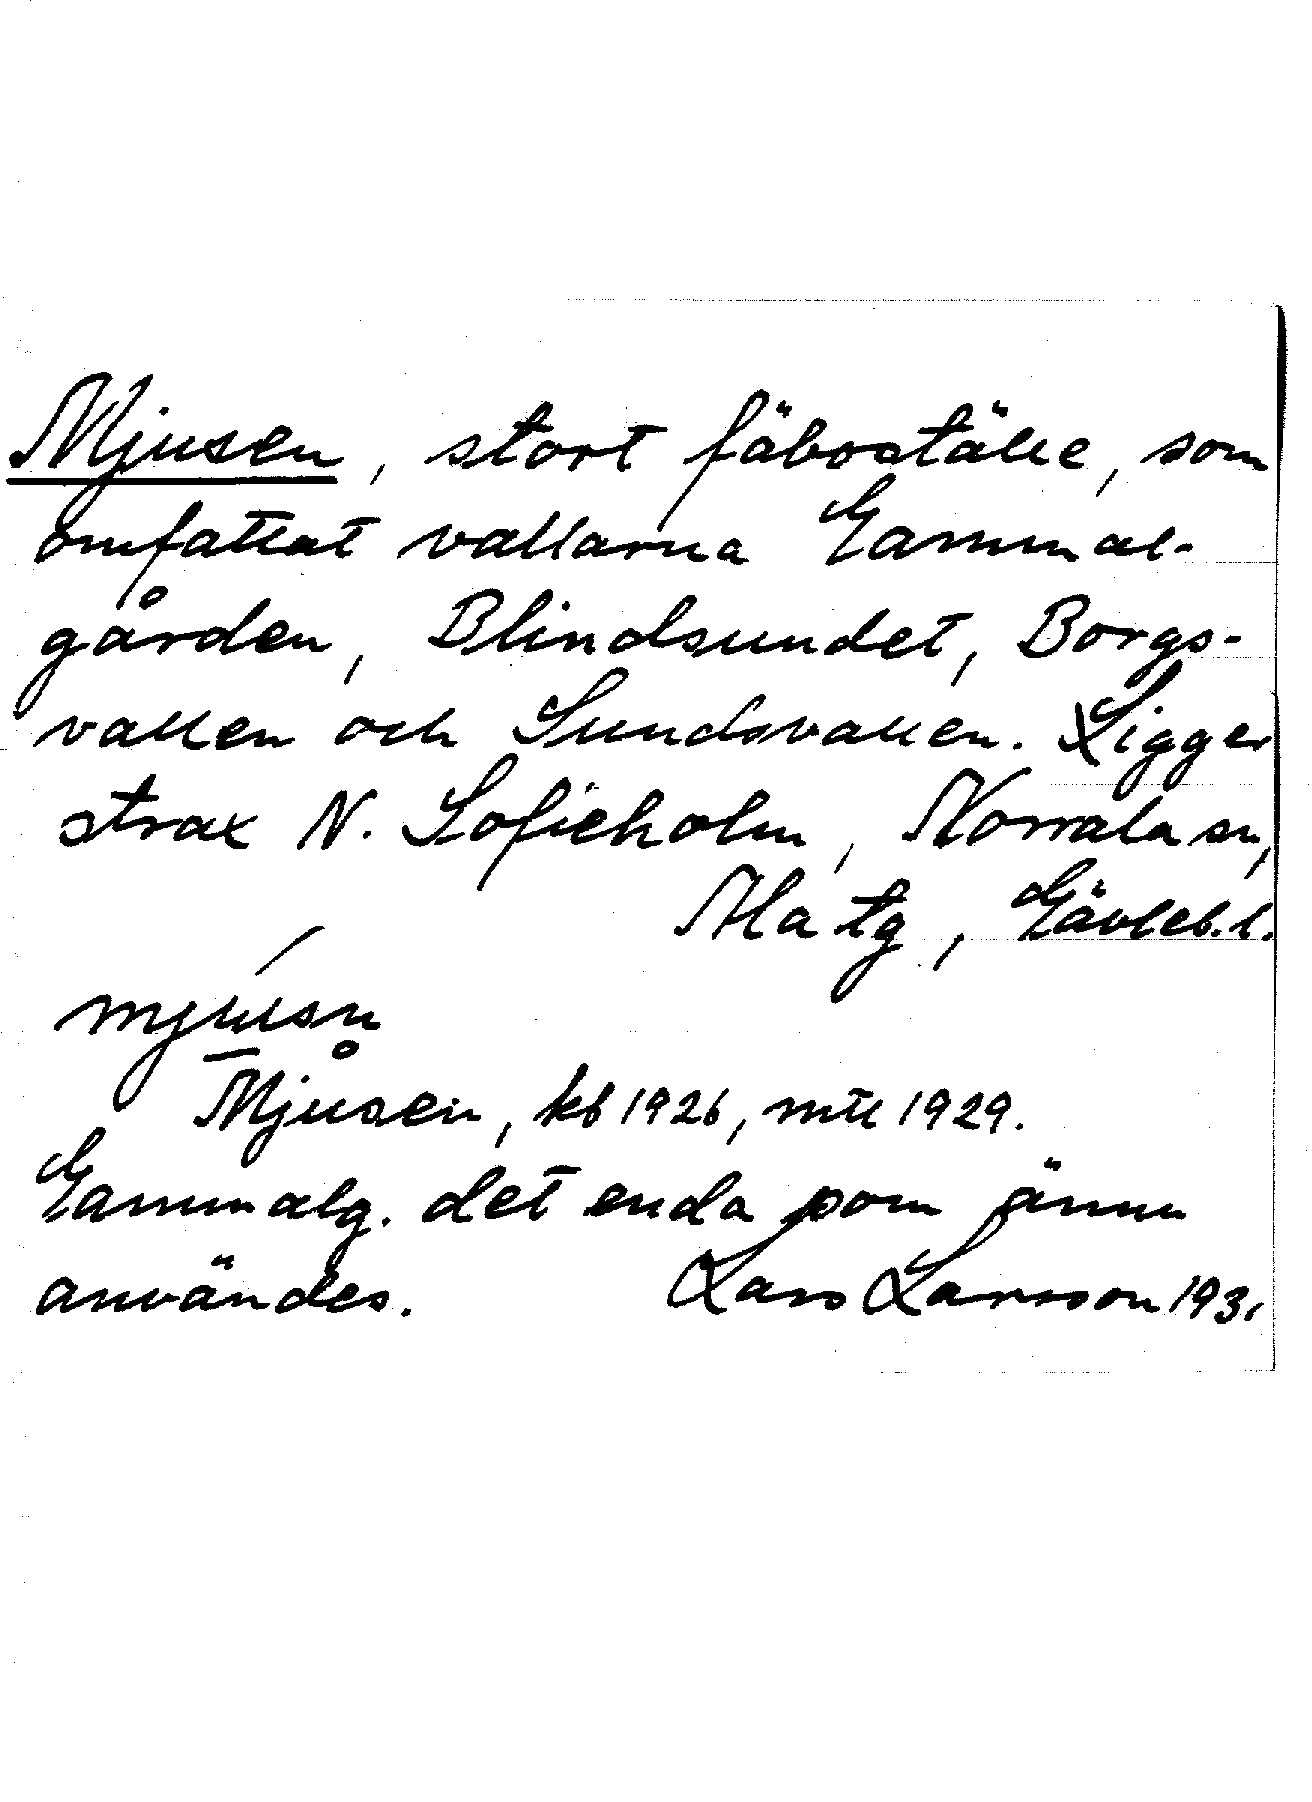 Mjusen, stort fäboställe, som
omfattat vallarna Gammal-
gården, Blindsundet, Borgs-
vallen och Sundsvallen. Ligger
strax N. Sofieholm, Norrala sn,
Ala tg, Gävleb. l.
mju̲sn̥
Mjusen, kb 1926, mtl 1929.
Gammalg. det enda som ännu
användes. Lars Larsson 1931